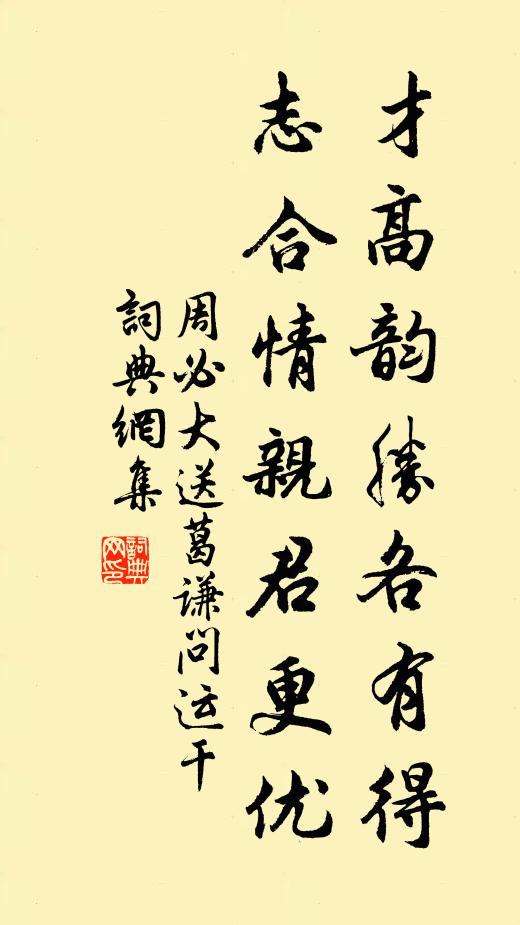 才高韵勝各有得
志合情親君更优
周必大送葛谦問运干
詞典網集
詞典网印